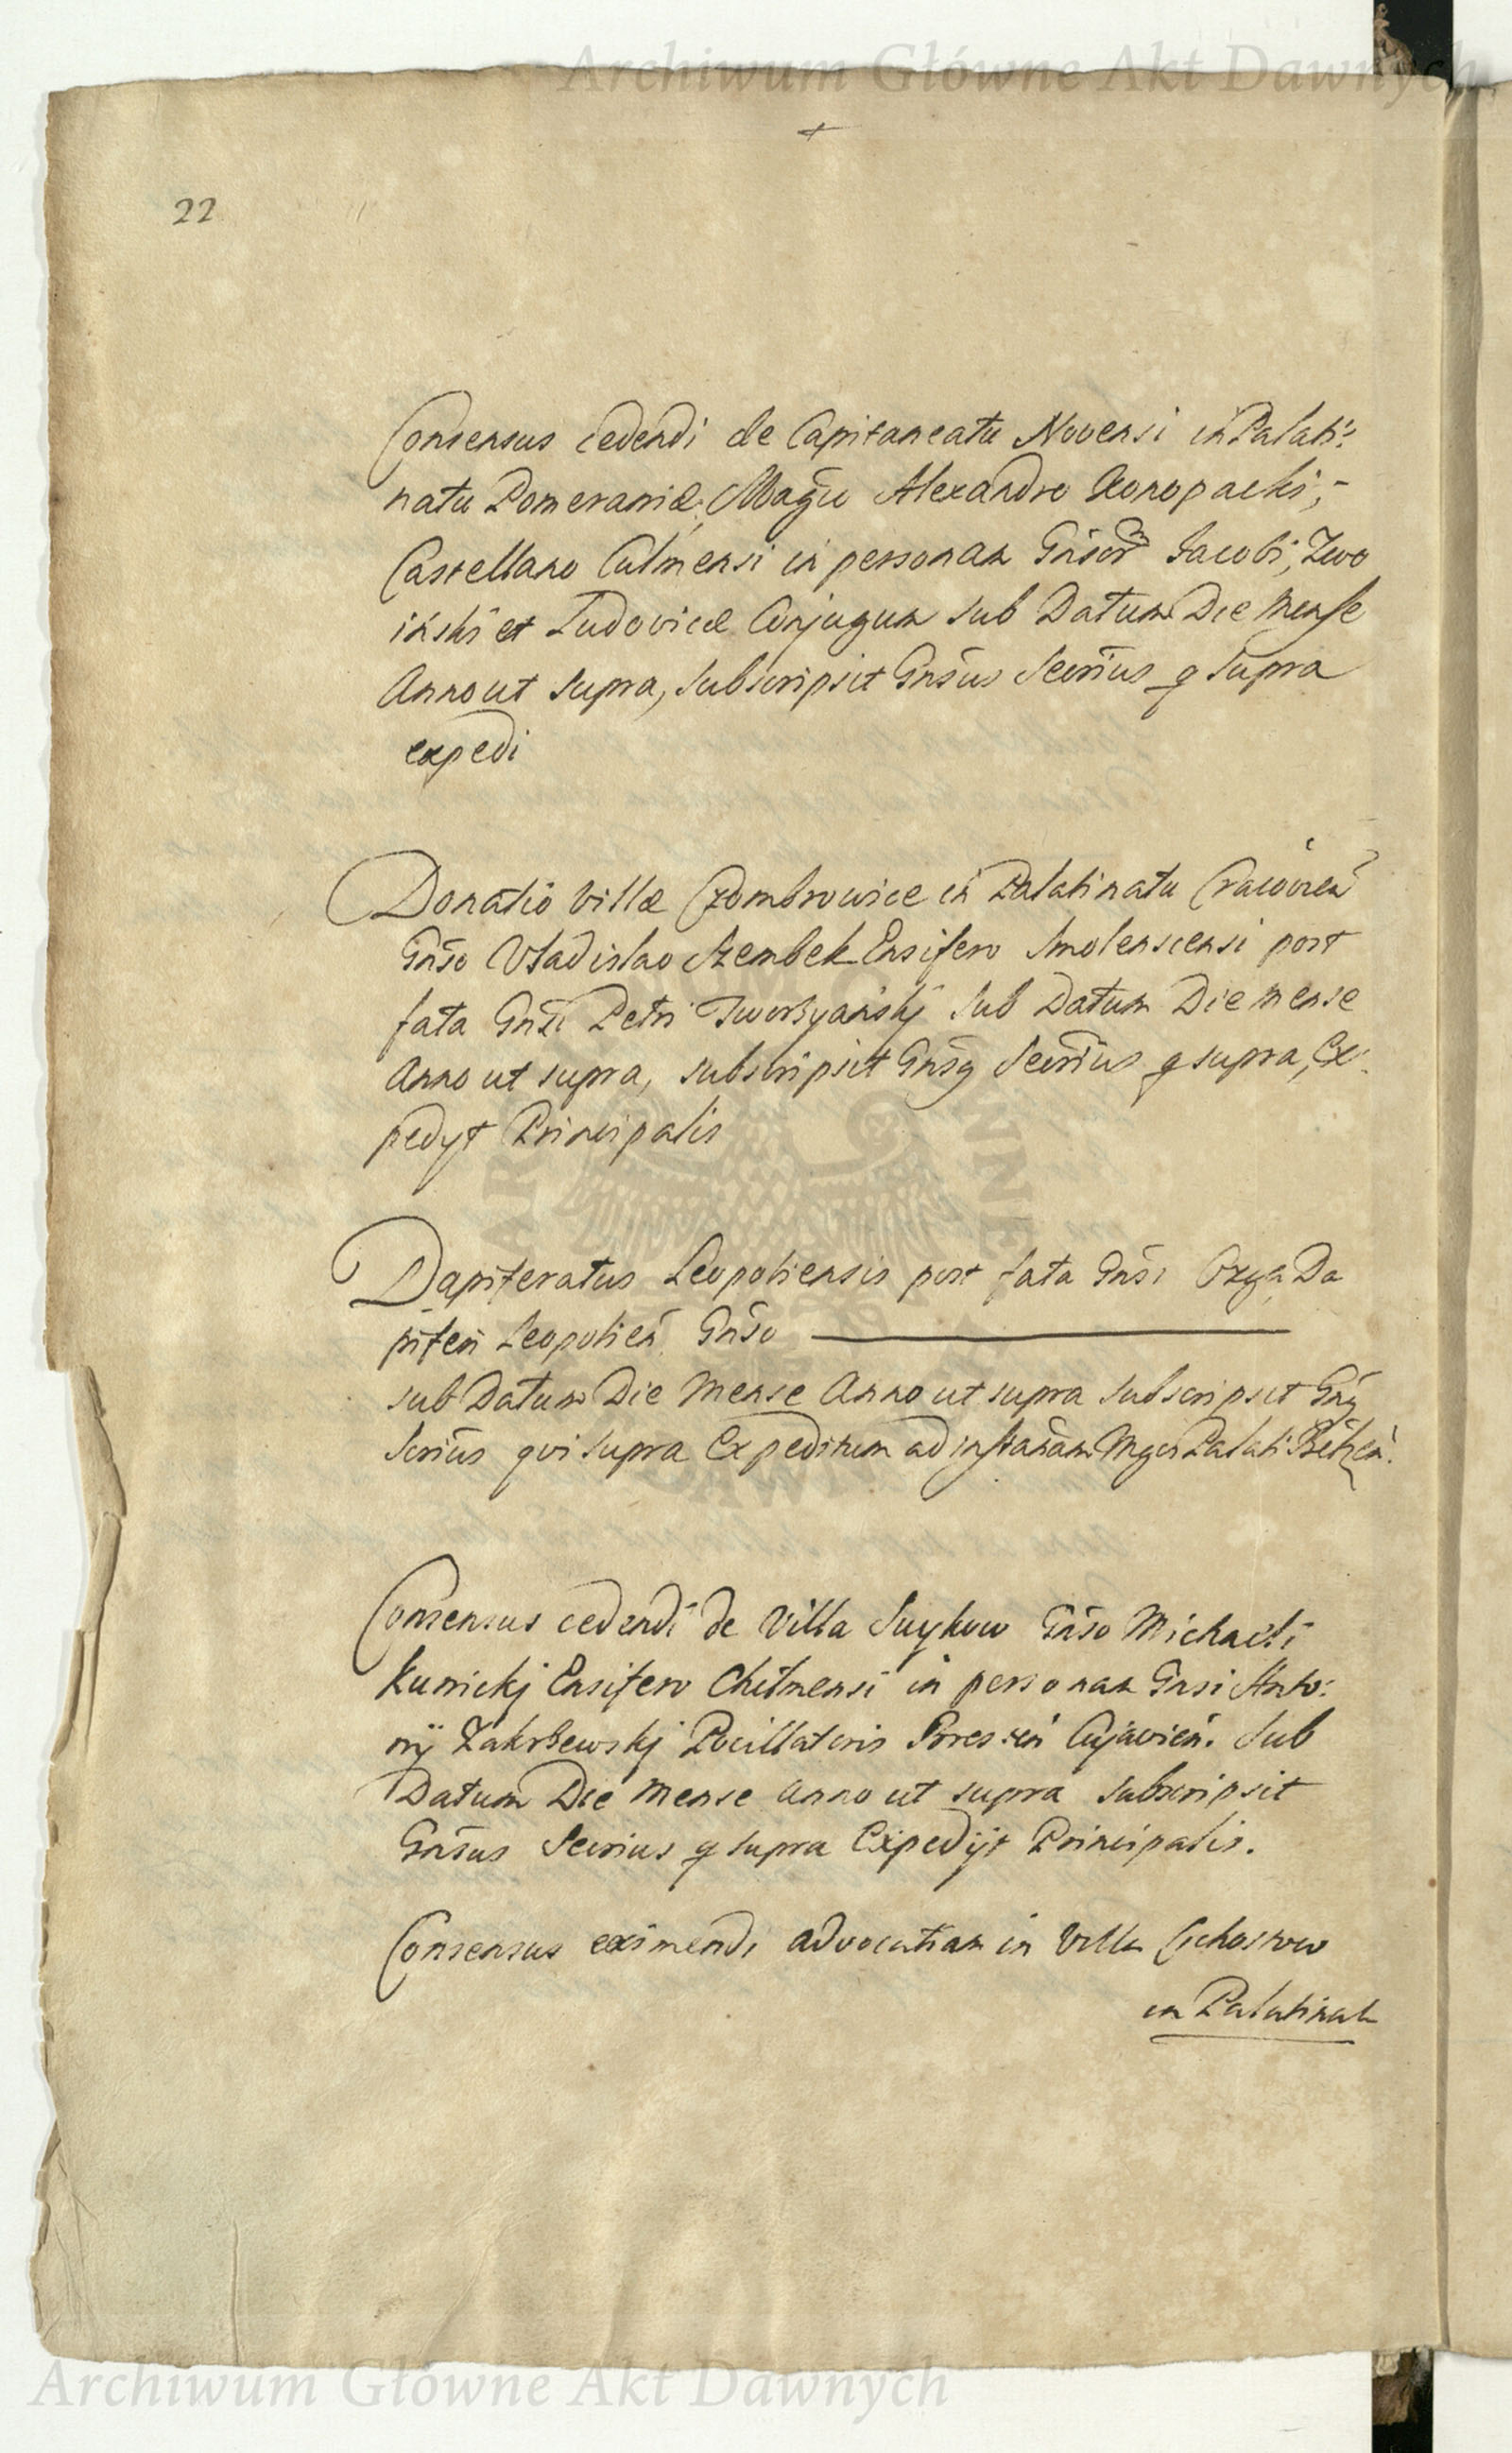 Archiwum Główne Akt Dawnych
22
Consensus cedendi de Capitaneatu Novensi in Palati:
natu Pomeraniæ, Magco Alexandro Konopacki,
Castellano Culmensi in personam Gnsor Jacobi, Zwo
inski et Ludovicæ Conjugum sub Datum Die Mense
Anno ut supra, subscripsit Gnsus Secrius q supra
expedi
Donatio villæ Czombrowice in Palatinatu Cracovien
Gnso Vladislao Szembek Ensifero Smolenscensi post
fata Gnsi Petri sub Datum Die mense
Anno ut supra, subscripsit Gnsq Secrius q supra, Ex:
pedyt Principalis
Dapiferatus Leopoliensis post fata Gnsi Ozga Da
piferi Leopolien Gnso
sub Datum Die Mense Anno ut supra subscripsit Gnsq
Scrius qvi supra Expeditum ad instanam Mgci Palati Belzen.
Consensus cedendi de Villa Suykow Gnso Michaeli
Kunickj Ensifero Chelmensi in personam Gnsi Anto:
nij Zakrzewskj Pocillatoris Bresten Cujavien. Sub
Datum Die Mense anno ut supra subscripsit
Gnsus Secrius q supra Expedijt Principalis.
Consensus eximendi advocatiam in Villa Cichostow
in Palatinat
Archiwum Główne Akt Dawnych